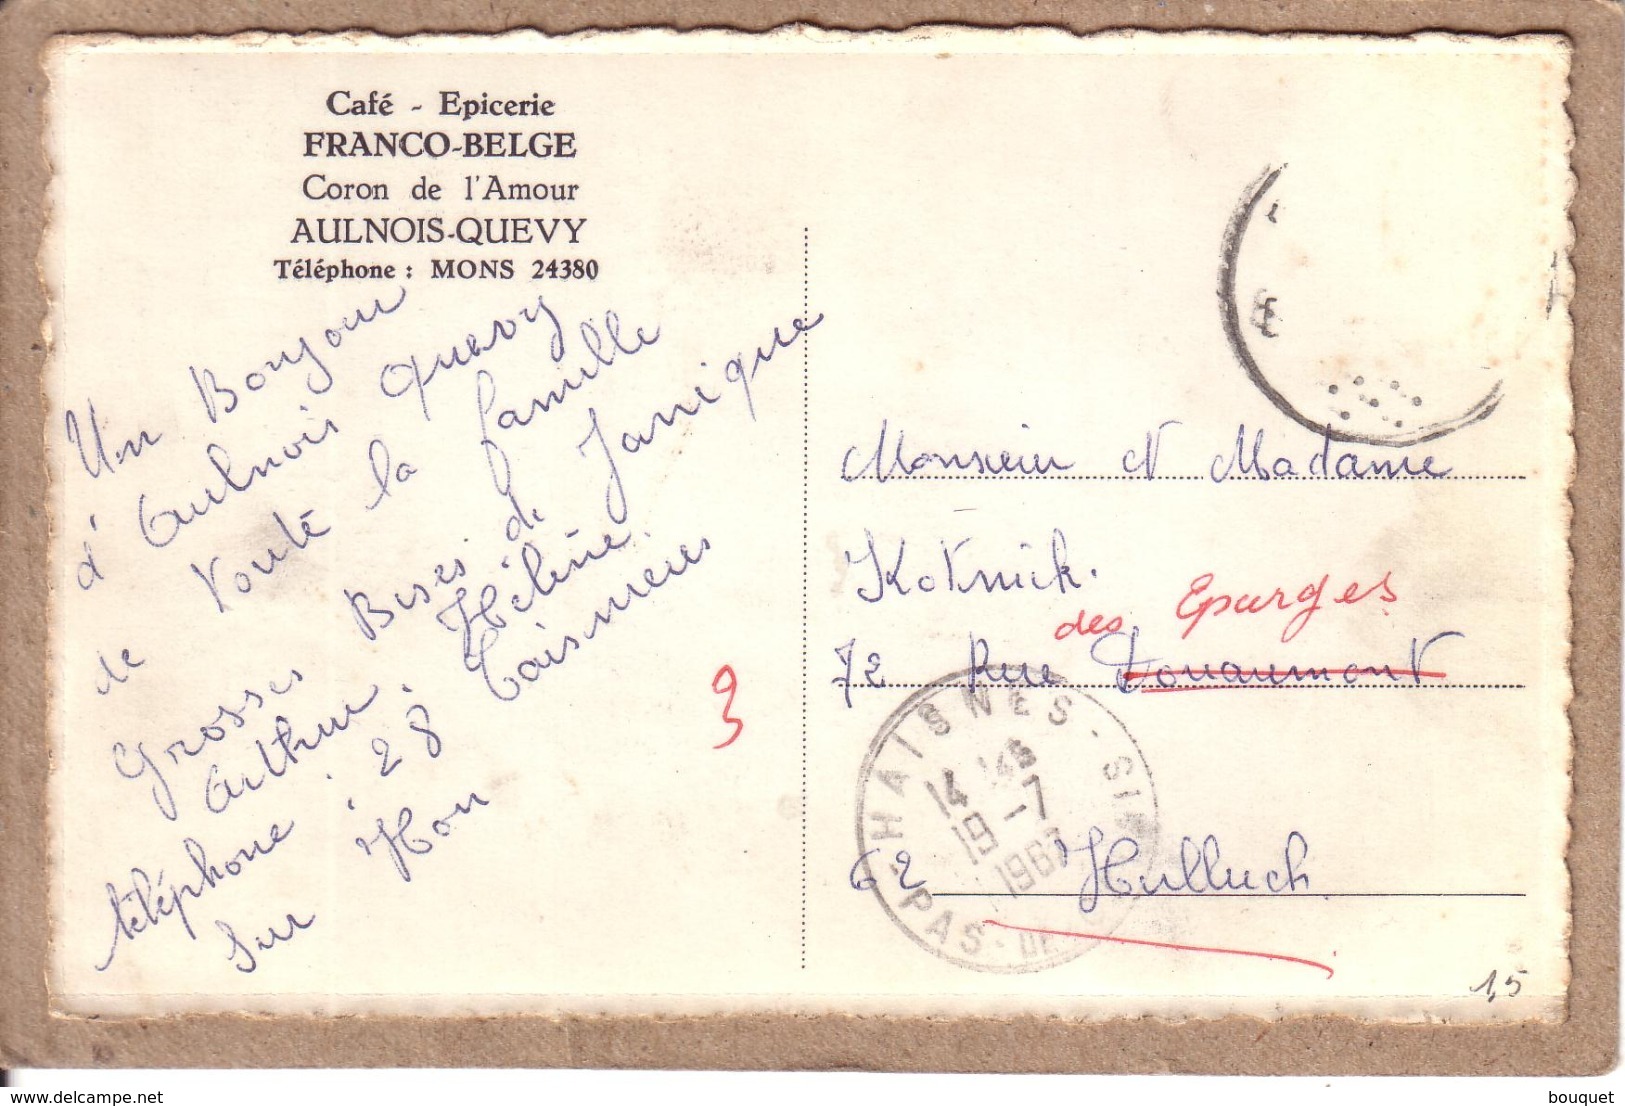 Café - Epicerie
FRANCO-BELGE
Coron de l'Amour
AULNOIS-QUEVY
Téléphone : MONS 24380
Un Bonjour
d'Aulnois Quevy
de toute la famille
Grosses Bises de Janique
Arthur. Hélène.
téléphone : 28
sur Hon
Monsieur et Madame
Kotnick.
des Eparges
72 Rue Douaumont
62 Hulluch
3
HAISNES - PAS-DE
14 H 45
19 -7
1967
1,5
bouquet
www.delcampe.net